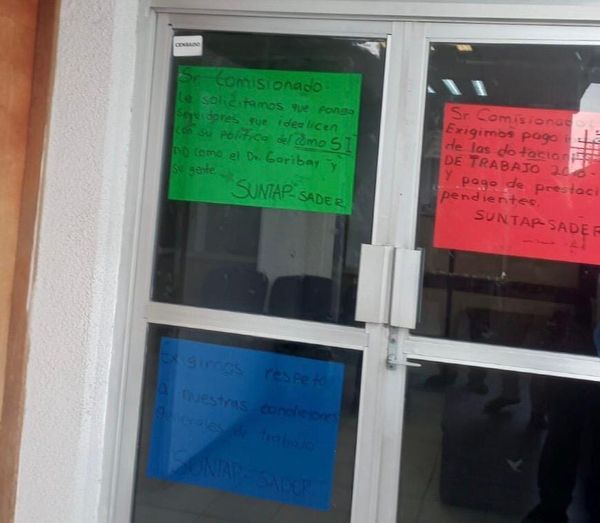 CENSADO
Sr Comisionado:
Le solicitamos que ponga
seguidores que idealicen
con su Política del como SI
NO como el Dr. Garibay y
su gente
SUNTAP-SADER
Sr Comisionado:
Exigimos pago
de las dotacion
DE TRABAJO
y pago de prestaci
pendientes.
SUNTAP-SADER
Exigimos respeto
a nuestras condiciones
generales de trabajo
SUNTAP-SADER